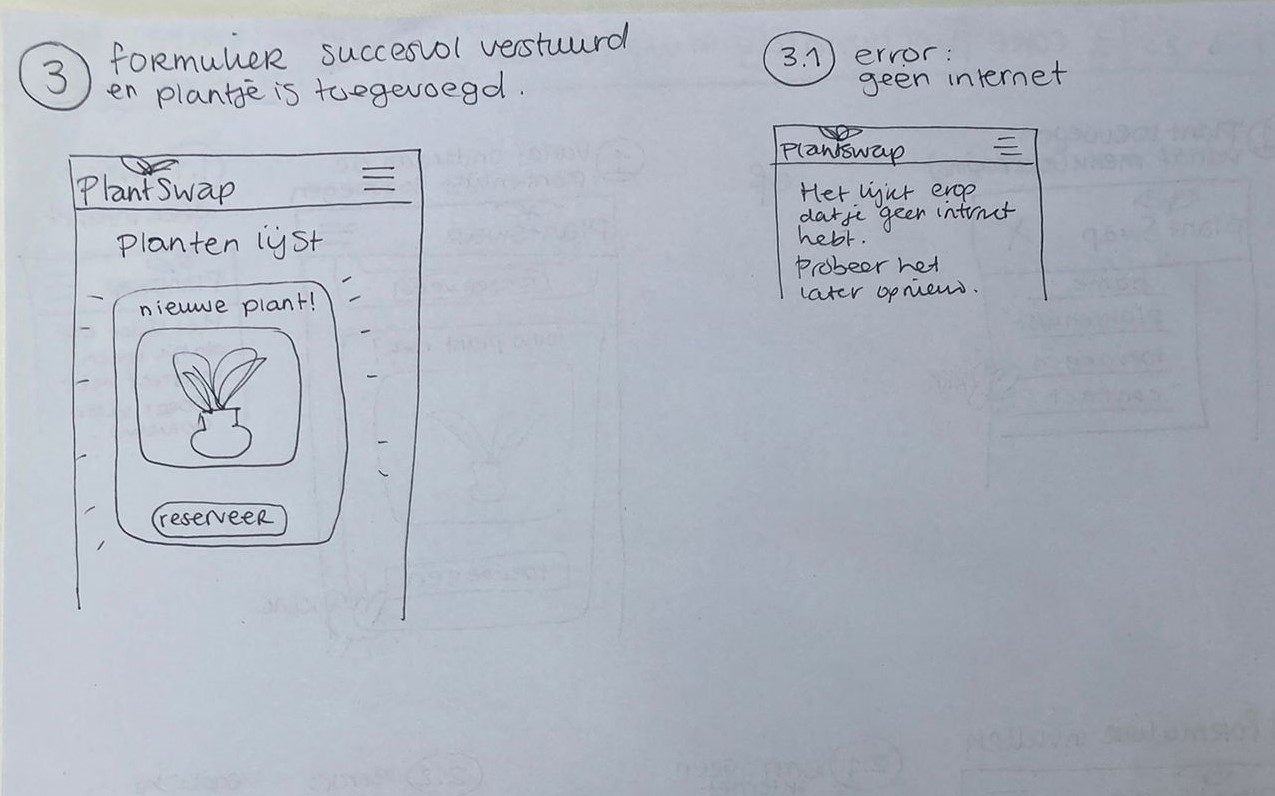 3
formulier succesvol verstuurd
en plantje is toegevoegd.
PlantSwap
Planten lijst
nieuwe plant!
reserveer
3.1
error:
geen internet
Plantswap
Het lijkt erop
dat je geen intrnet
hebt.
Probeer het
later opnieuw.